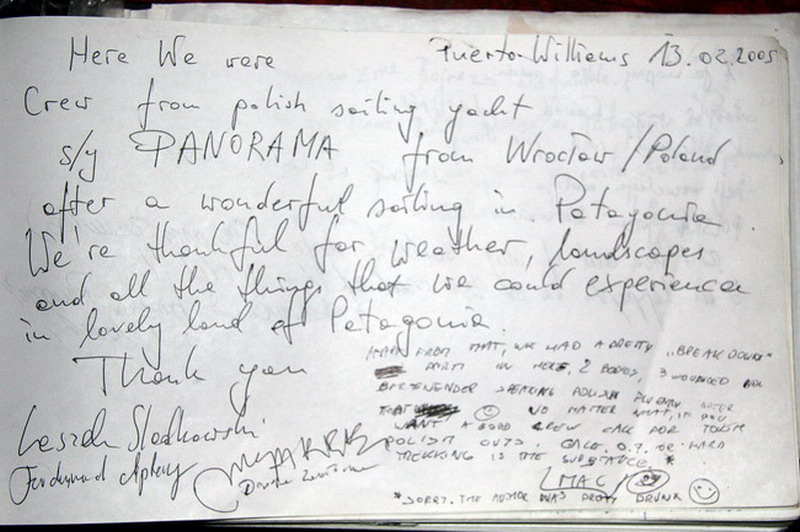 Here We were Puerto Williams 13.02.2005
Crew from polish sailing yacht
s/y PANORAMA from Wrocław/Poland,
after a wonderful sailing in Patagonia.
We're thankful for weather, landscapes
and all the things that we could experience
in lovely land of Patagonia.
Thank you
APART FROM THAT, WE HAD A PRETTY „BREAK DOWN"
PARTY IN HERE, 2 BODIES, 3 WOUNDED AND
BARTENENDER SPEAKING POLISH FLUENTLY AFTER
THAT NO MATTER WHAT, IF YOU
WANT A GOOD CREW CALL FOR TOUGH
POLISH GUYS. GALE O.7. OR HARD
TREKKING IS THE SUBSTANCE *
MAC
*SORRY. THE AUTHOR WAS PRETTY DRUNK
Leszek Sladkowski
Ferdynand